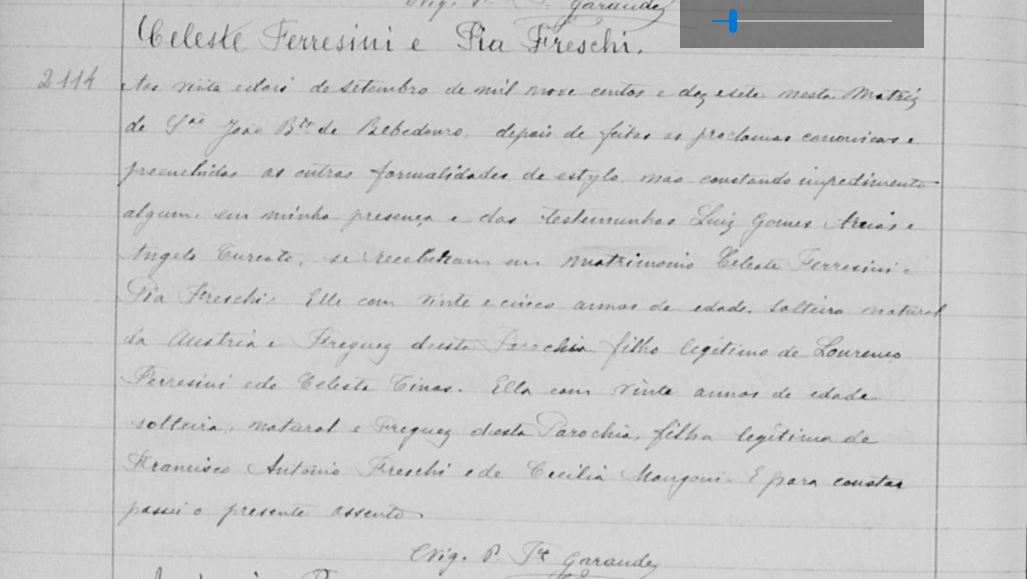 Vig. P. Fr. Garaudez
Celeste Ferresini e Pia Freschi.
2114
Aos vinte e dois de setembro de mil nove centos e dez e sete nesta Matriz
de São João Bta de Bebedouro, depois de feitas as proclamas canonicas e
preenchidas as outras formalidades de estylo, não constando impedimento
algum, em minha presença e das testemunhas Luiz Gomes Areias e
Angelo Tureato, se receberam em matrimonio Celeste Ferresini e
Pia Freschi. Elle com vinte e cinco annos de edade, solteiro natural
da Austria e Freguez desta Parochia filho legitimo de Lourenço
Ferresini e de Celeste Tinas. Ella com vinte annos de edade
solteira, natural e Freguez desta Parochia, filha legitima de
Francisco Antonio Freschi e de Cecilia Mangoni. E para constar
passei o presente assento
Vig. P. Fr. Garaudez